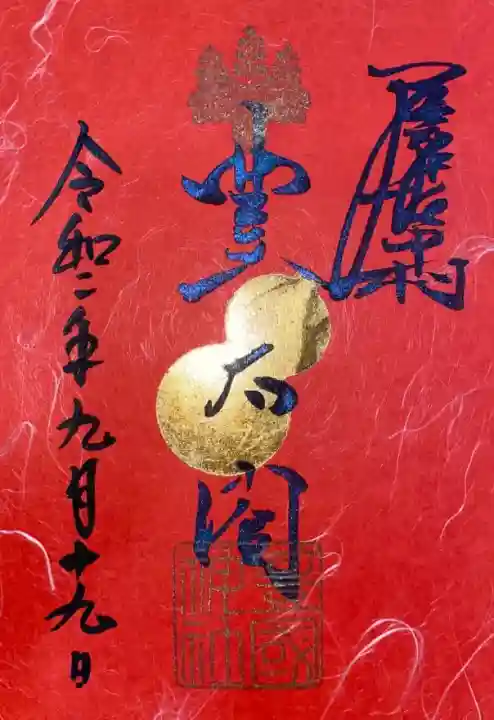 豊太閤
令和二年九月十九日
豊國神社